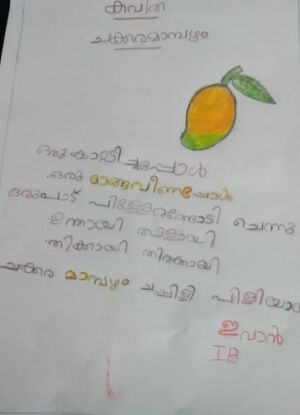 കവിത
ചക്കരമാമ്പഴം
ഒരു കാറ്റടിച്ചപ്പോൾ
ഒരു മാങ്ങവീണപ്പോൾ
ഒരുപാട് പിള്ളേരങ്ങോടി ചെന്നു
ഉന്തായി തള്ളായി
തിക്കായി തിരക്കായി
ചക്കര മാമ്പഴം ചപ്പിളി പിളിയായ
ഇവാൻ
IB